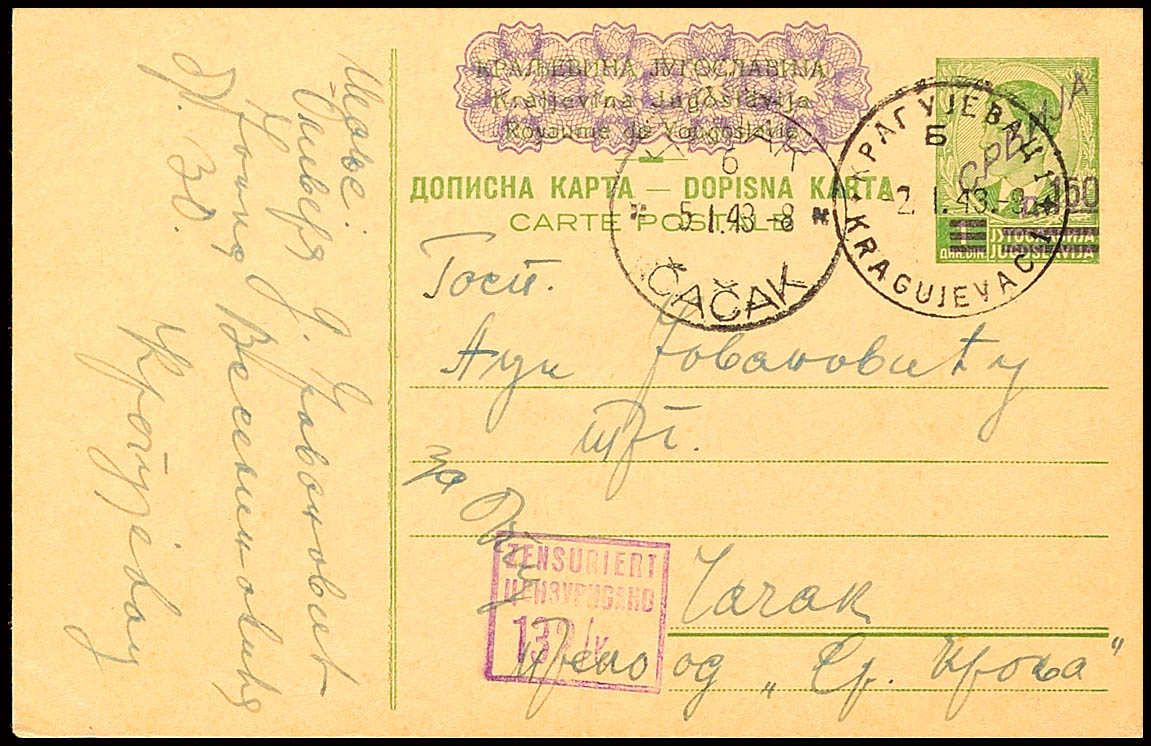 КРАЉЕВИНА ЈУГОСЛАВИЈА
Kraljevina Jugoslavija
Royaume de Yougoslavie
ДОПИСНА КАРТА — DOPISNA KARTA
CARTE POSTALE
6
5.I.43-8
ČAČAK
КРАГУЈЕВАЦ 1
Б
-2.I.43.-9
KRAGUJEVAC 1
СРБИЈА
1.50
1
ДИН. DIN.
ЈУГОСЛАВИЈА
JUGOSLAVIJA
Госп.
Аци Јовановићу
за
Чачак
Преко од „Ср. Крања“
ZENSURIERT
ЦЕНЗУРИСАНО
132
Шаље:
Оливера Д. Јовановић
бр. 30.
Крагујевац